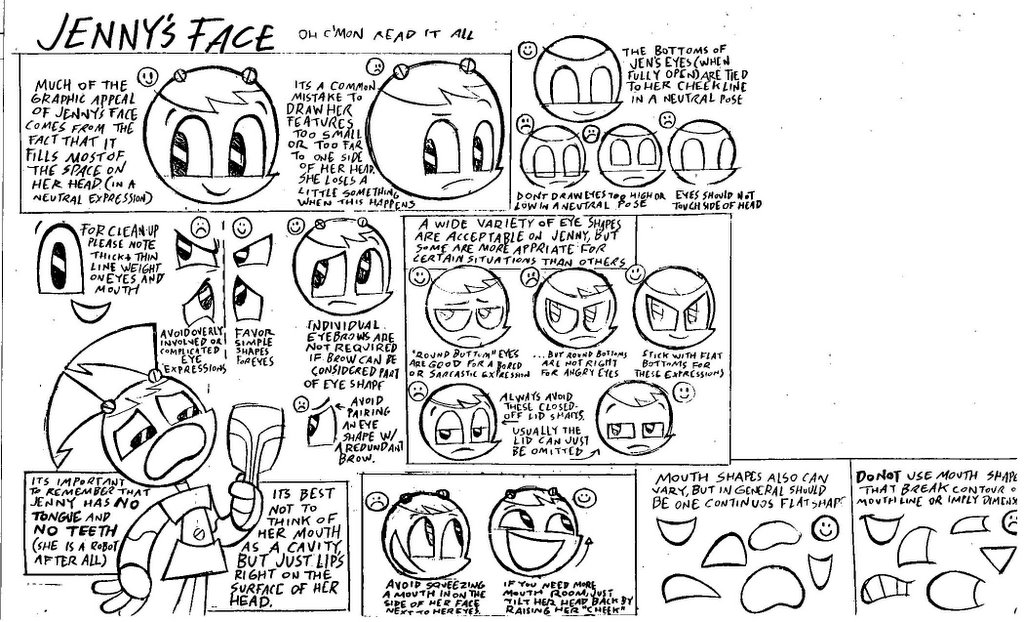 JENNY'S FACE
OH C'MON READ IT ALL
MUCH OF THE
GRAPHIC APPEAL
OF JENNY'S FACE
COMES FROM THE
FACT THAT IT
FILLS MOST OF
THE SPACE ON
HER HEAD. (IN A
NEUTRAL EXPRESSION)
ITS A COMMON
MISTAKE TO
DRAW HER
FEATURES
TOO SMALL
OR TOO FAR
TO ONE SIDE
OF HER HEAD.
SHE LOSES A
LITTLE SOMETHING
WHEN THIS HAPPENS
THE BOTTOMS OF
JEN'S EYES (WHEN
FULLY OPEN) ARE TIED
TO HER CHEEKLINE
IN A NEUTRAL POSE
DONT DRAW EYES TOO HIGH OR
LOW IN A NEUTRAL POSE
EYES SHOULD NOT
TOUCH SIDE OF HEAD
FOR CLEAN-UP
PLEASE NOTE
THICK & THIN
LINE WEIGHT
ON EYES AND
MOUTH
AVOID OVERLY
INVOLVED OR
COMPLICATED
EYE
EXPRESSIONS
FAVOR
SIMPLE
SHAPES
FOR EYES
INDIVIDUAL
EYEBROWS ARE
NOT REQUIRED
IF BROW CAN BE
CONSIDERED PART
OF EYE SHAPE
AVOID
PAIRING
AN EYE
SHAPE W/
A REDUNDANT
BROW.
A WIDE VARIETY OF EYE SHAPES
ARE ACCEPTABLE ON JENNY, BUT
SOME ARE MORE APPRIATE FOR
CERTAIN SITUATIONS THAN OTHERS
"ROUND BOTTOM" EYES
ARE GOOD FOR A BORED
OR SARCASTIC EXPRESSION
...BUT ROUND BOTTOMS
ARE NOT RIGHT
FOR ANGRY EYES
STICK WITH FLAT
BOTTOMS FOR
THESE EXPRESSIONS
ALWAYS AVOID
THESE CLOSED-
OFF LID SHAPES.
USUALLY THE
LID CAN JUST
BE OMITTED
ITS IMPORTANT
TO REMEMBER THAT
JENNY HAS NO
TONGUE AND
NO TEETH
(SHE IS A ROBOT
AFTER ALL)
ITS BEST
NOT TO
THINK OF
HER MOUTH
AS A CAVITY
BUT JUST LIPS
RIGHT ON THE
SURFACE OF HER
HEAD.
AVOID SQUEEZING
A MOUTH IN ON THE
SIDE OF HER FACE
NEXT TO HER EYES.
IF YOU NEED MORE
MOUTH ROOM, JUST
TILT HER HEAD BACK BY
RAISING HER "CHEEK"
MOUTH SHAPES ALSO CAN
VARY, BUT IN GENERAL SHOULD
BE ONE CONTINUOS FLAT SHAPE
DO NOT USE MOUTH SHAPE
THAT BREAK CONTOUR O
MOUTHLINE OR IMPLY DIMENS